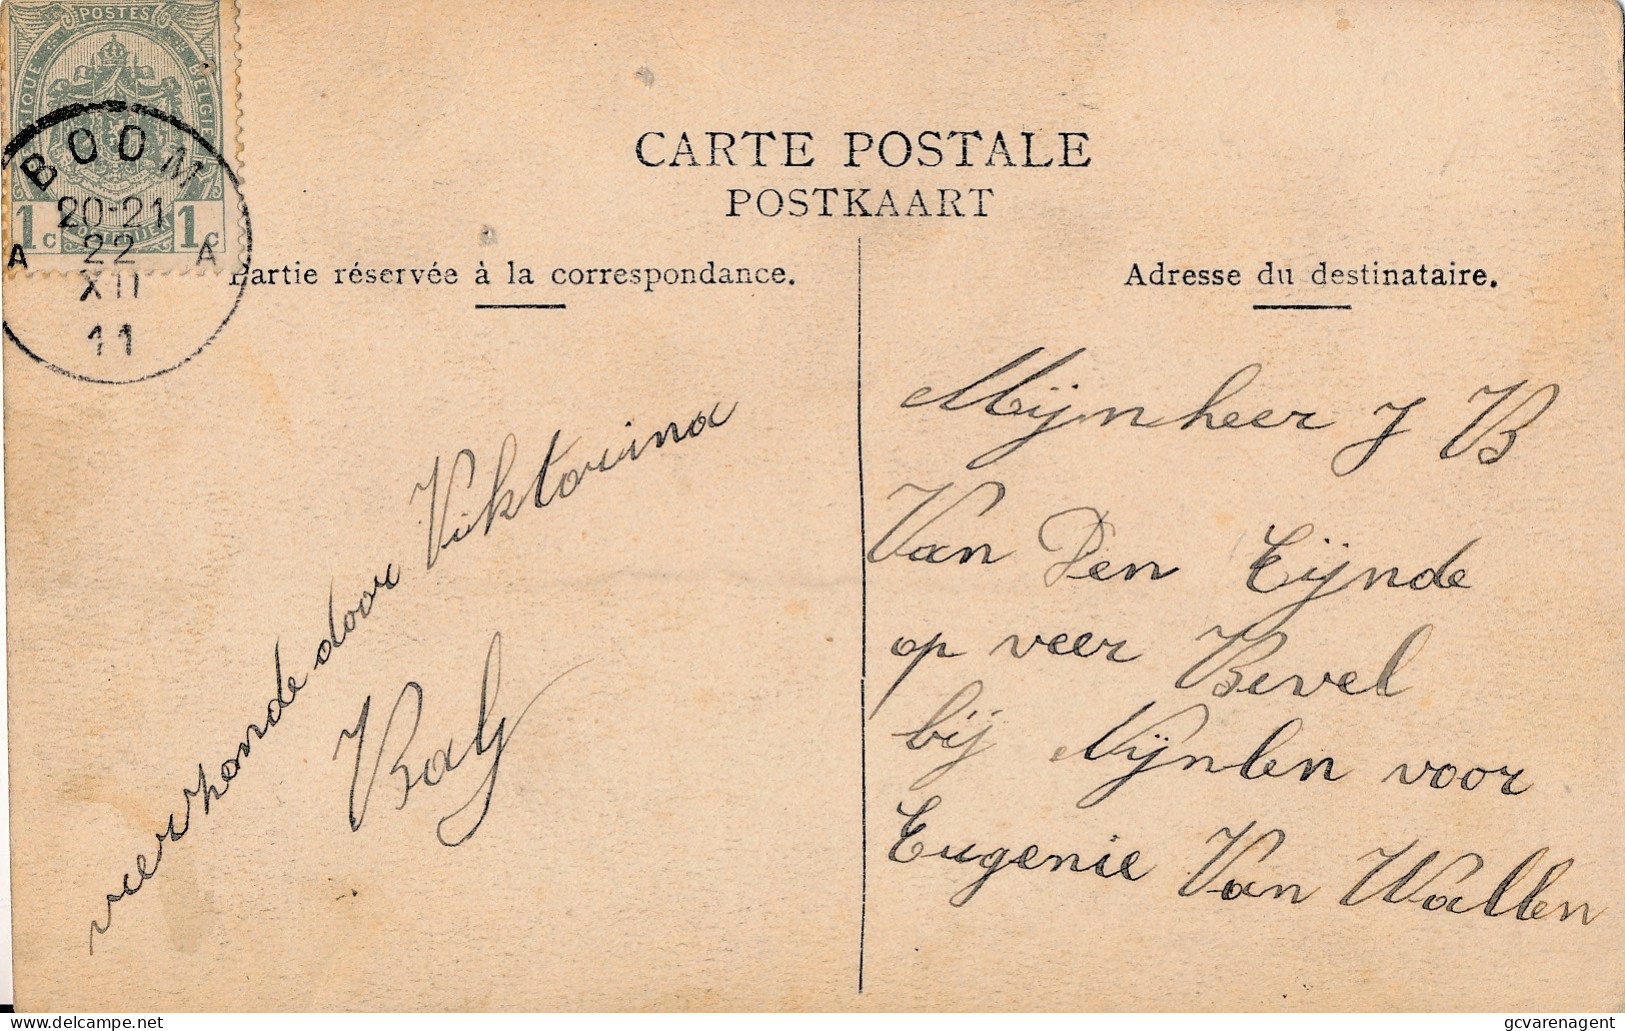 POSTES
BELGIQUE BELGIË
1c 1c
BOOM
20-21
22
A A
XII
11
CARTE POSTALE
POSTKAART
Partie réservée à la correspondance.
Adresse du destinataire.
veerhonde door Viktorina
Baly
Mijnheer J B
Van Den Eijnde
op veer Bevel
bij Nijnlen voor
Eugenie Van Wallen
delcampe.net
gcvarenagent